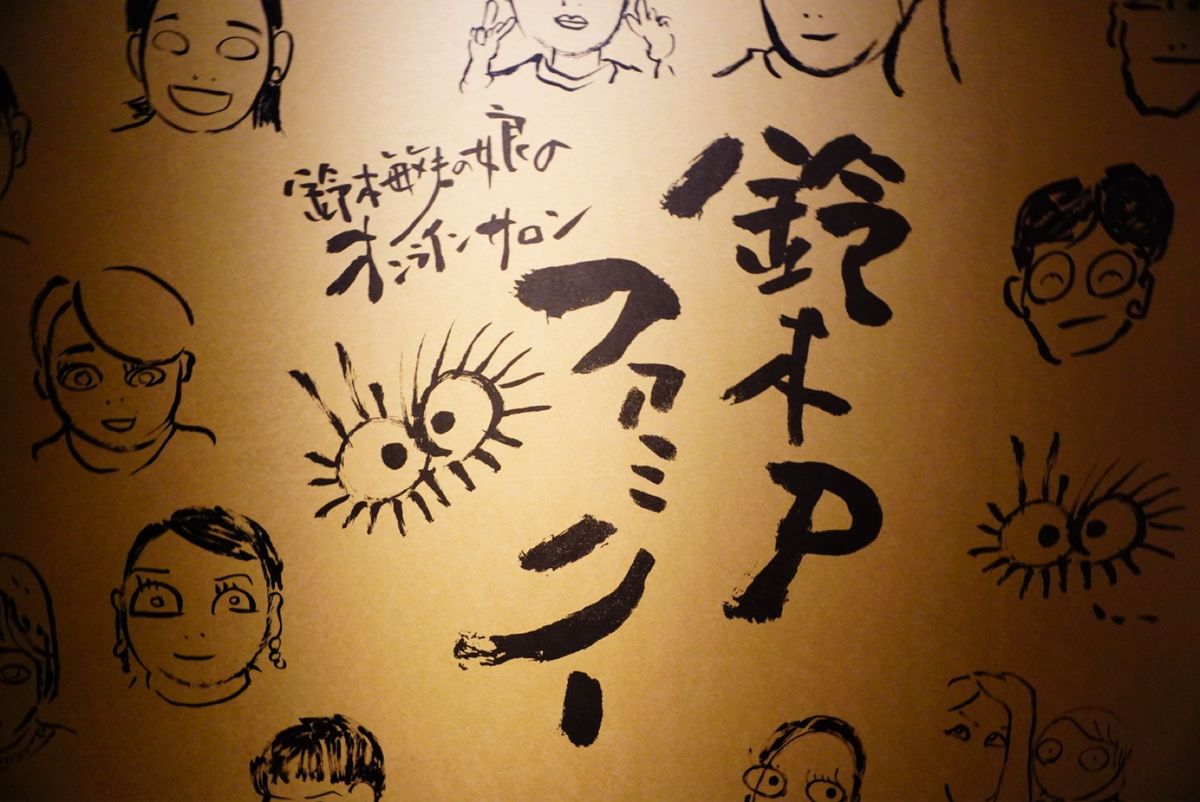 鈴木敏夫の娘の
オンラインサロン
鈴木P
ファミリー